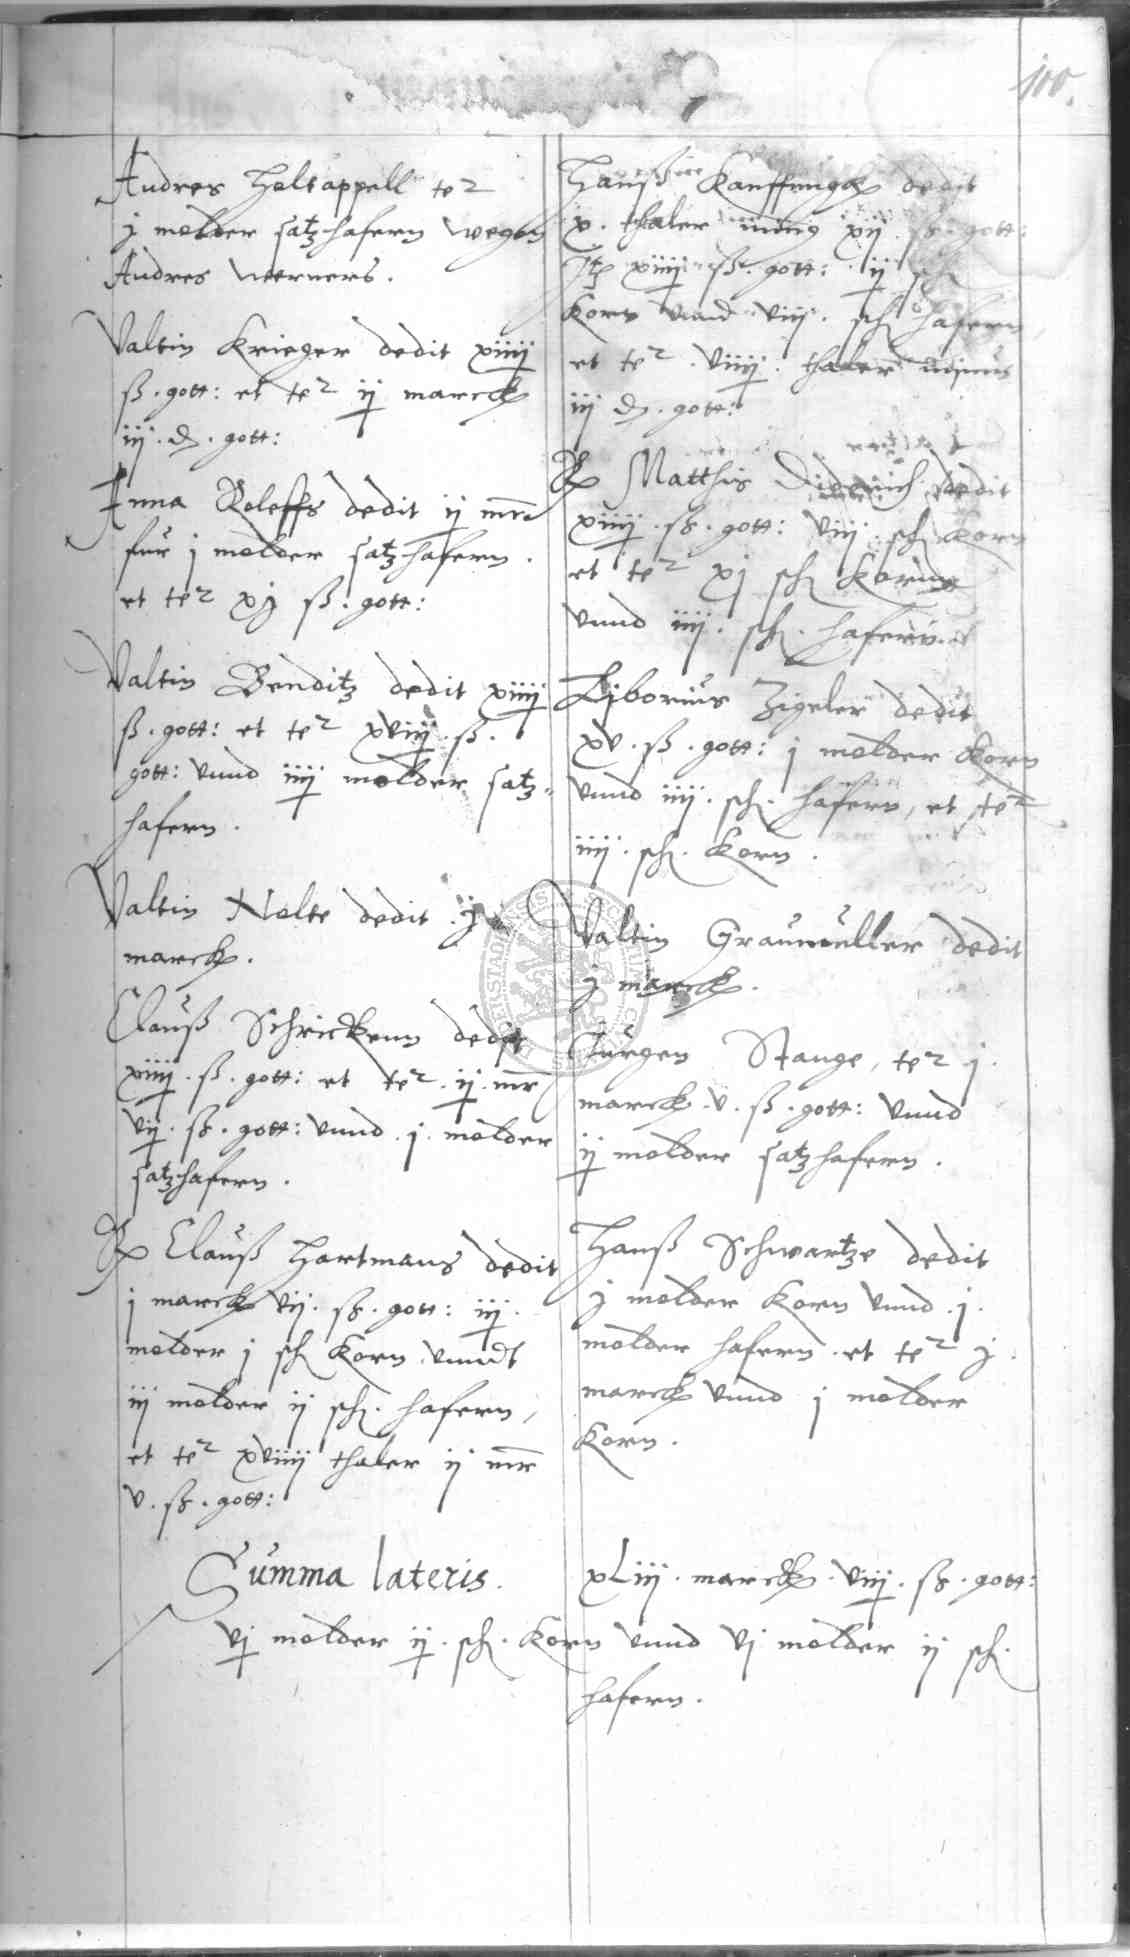 100.
Andres Holtappell te2
j molder satzhafern wegen
Andres werners.
Valtin Krieger dedit xiiij
ß. gott: et te2 ij marck
iij d. gott:
Anna Roleffs dedit ij mr
fur j molder satzhafern.
et te2 xj ß. gott:
Valtin Benditz dedit xiiij
ß. gott: et te2 xviij ß.
gott: vnnd iiij molder satz-
hafern.
Valtin Nolte dedit j
marck.
Clauß Schrickenn dedit
xiiij ß. gott: et te2 ij mr
vij ß. gott: vnnd j molder
satzhafern.
Clauß Hartmans dedit
j marck vij ß. gott: iij
molder j sch Korn vnndt
iij molder ij sch. hafern,
et te2 xviiij thaler ij mr
v. ß. gott:
Hanß Kauffungk dedit
x. thaler minus xij ß. gott:
xiiij ß. gott: ij sch
Korn vnnd viij. sch hafern,
et te2 viiij. thaler minus
iij d. gott:
Matthis Diderich dedit
xiiij ß. gott: viij sch Korn
et te2 xj sch Korn
vnnd iiij. sch. hafern.
Liborius Zigeler dedit
xv. ß. gott: j molder Korn
vnnd iiij. sch. hafern, et te2
iiij. sch. Korn.
Valtin Graumuller dedit
j marck.
Jurgen Stange, te2 j.
marck v. ß. gott: vnnd
ij molder satzhafern.
Hanß Schwartze dedit
j molder Korn vnnd j.
molder hafern et te2 j.
marck vnnd j molder
Korn.
Summa lateris. xLiij. marck. viij. ß. gott:
vj molder ij. sch. Korn vnnd vj molder ij sch.
hafern.